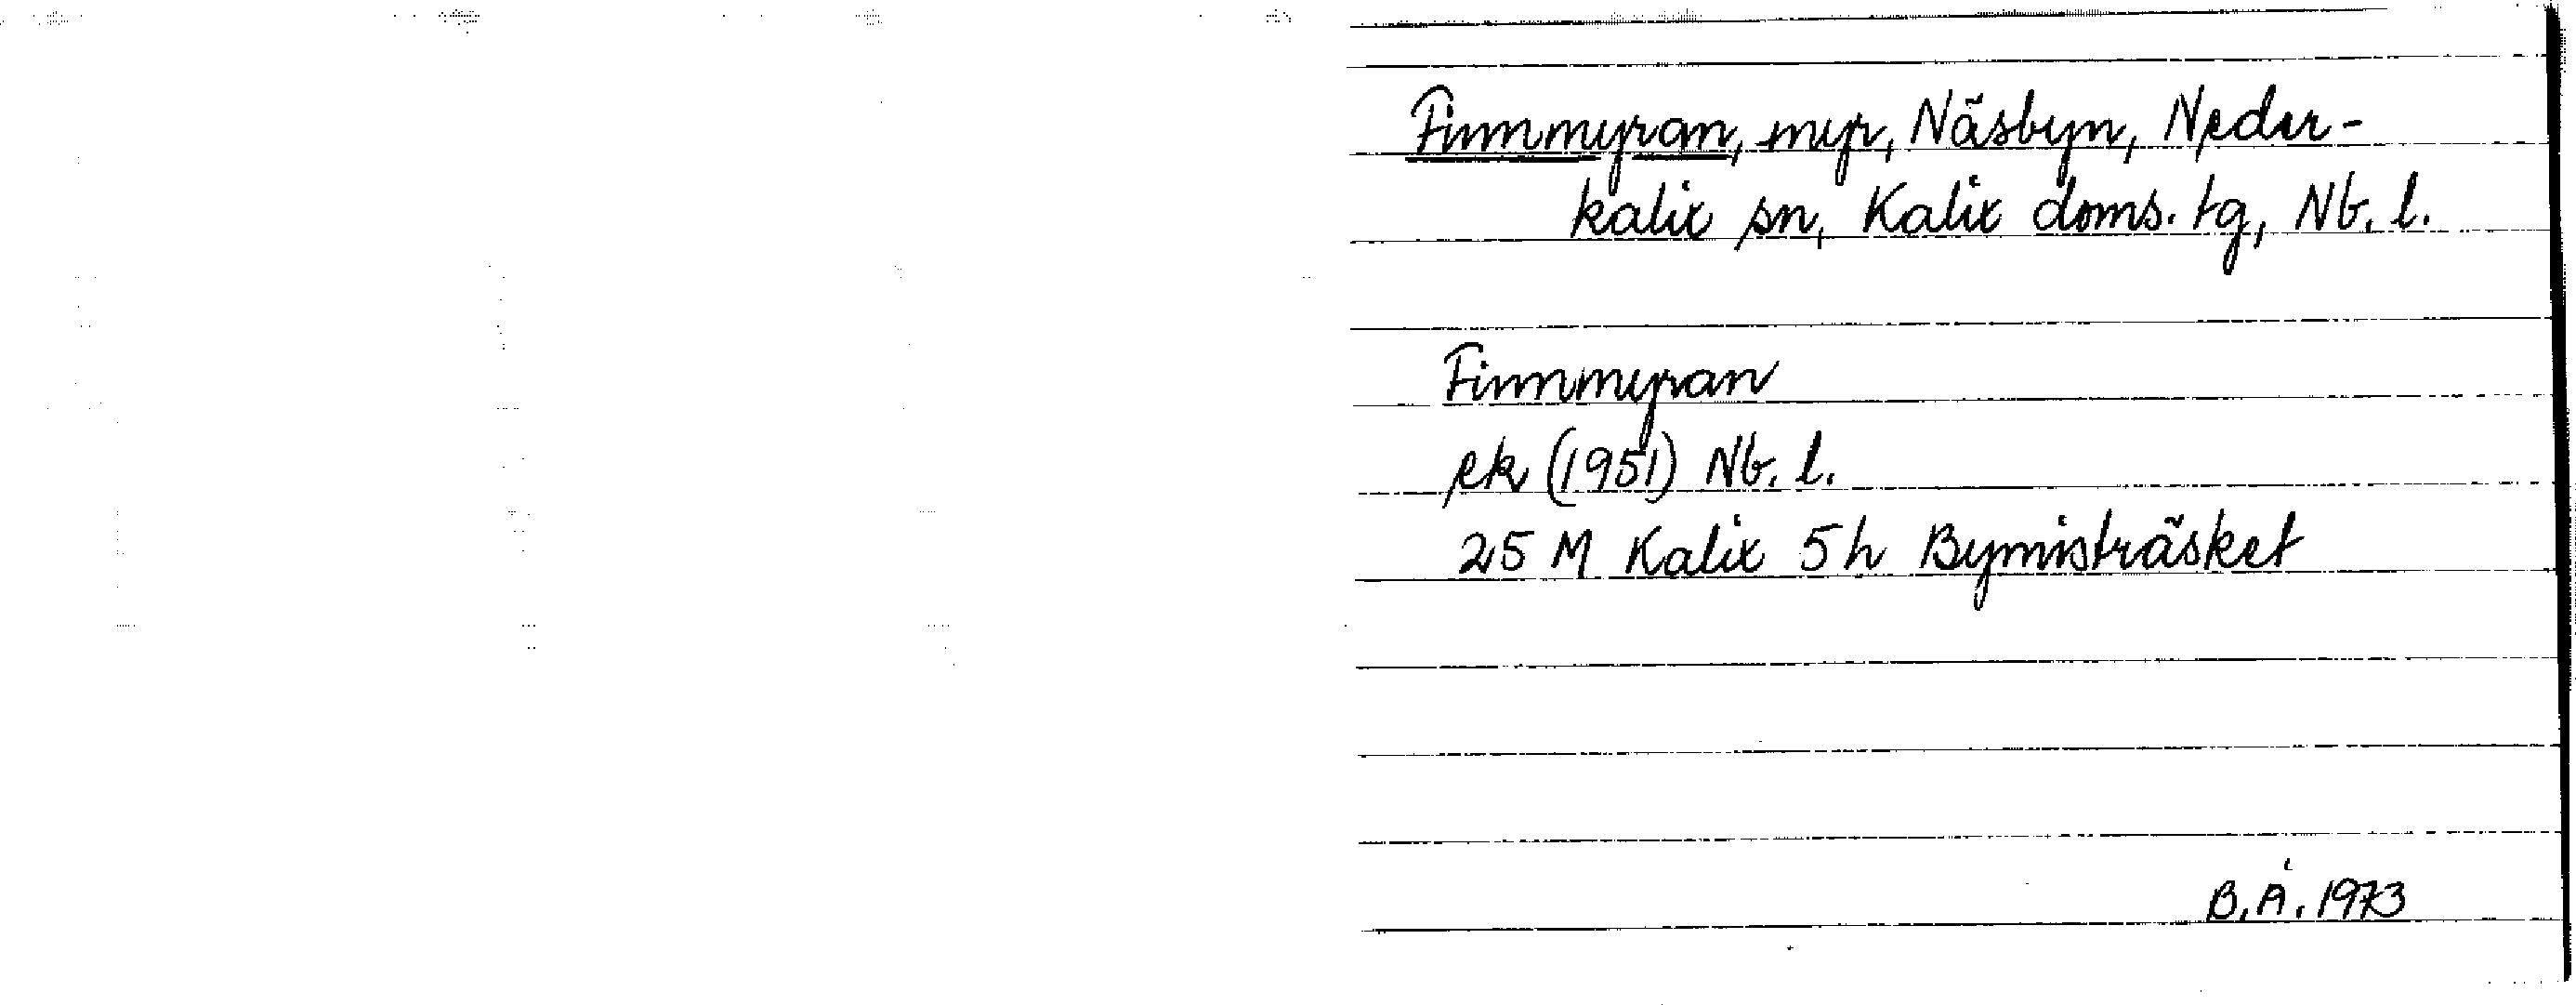 Finnmyran, myr, Näsbyn, Neder-
kalix sn, Kalix doms. tg, Nb. l.
Finnmyran
ek (1951) Nb. l.
25 M Kalix 5h Bymisträsket
B.Å. 1973